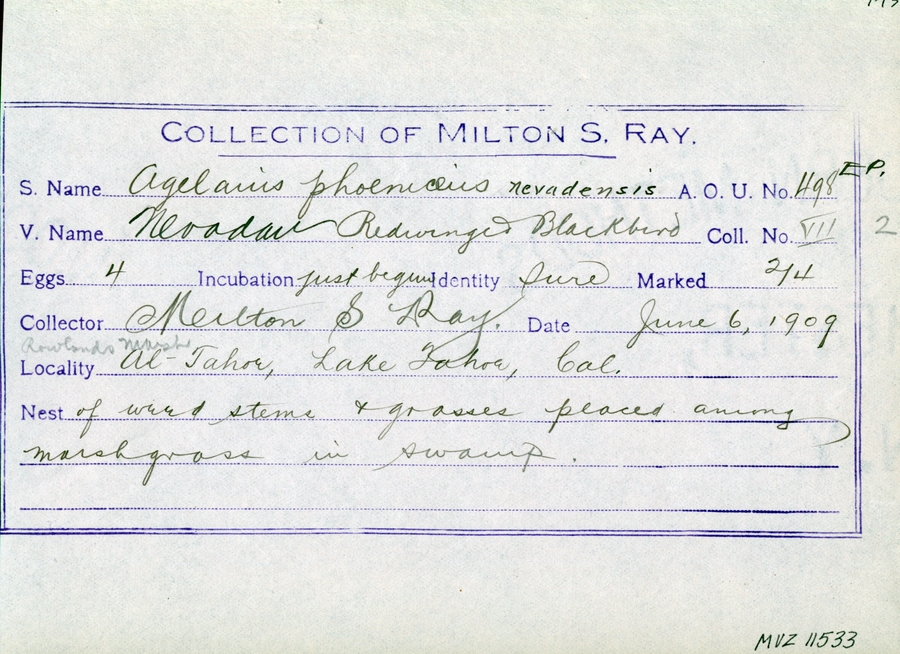 COLLECTION OF MILTON S. RAY.
S. Name Agelaius phoeniceus nevadensis A. O. U. No. 498 EP.
V. Name Nevadan Redwinged Blackbird Coll. No. VII 2
Eggs 4 Incubation just begun Identity Sure Marked 2/4
Collector Milton S Ray. Date June 6, 1909
Rowlands Marsh
Locality Al-Tahoe, Lake Tahoe, Cal.
Nest of weed stems & grasses placed among
marshgrass in swamp.
MVZ 11533